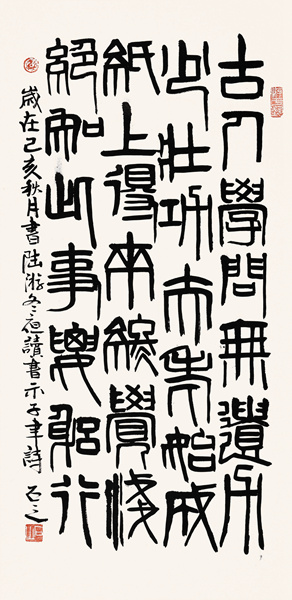 古人學問無遺力
少壯功夫老始成
紙上得來終覺淺
絕知此事要躬行
歲在己亥秋月書陸游冬夜讀書示子聿詩